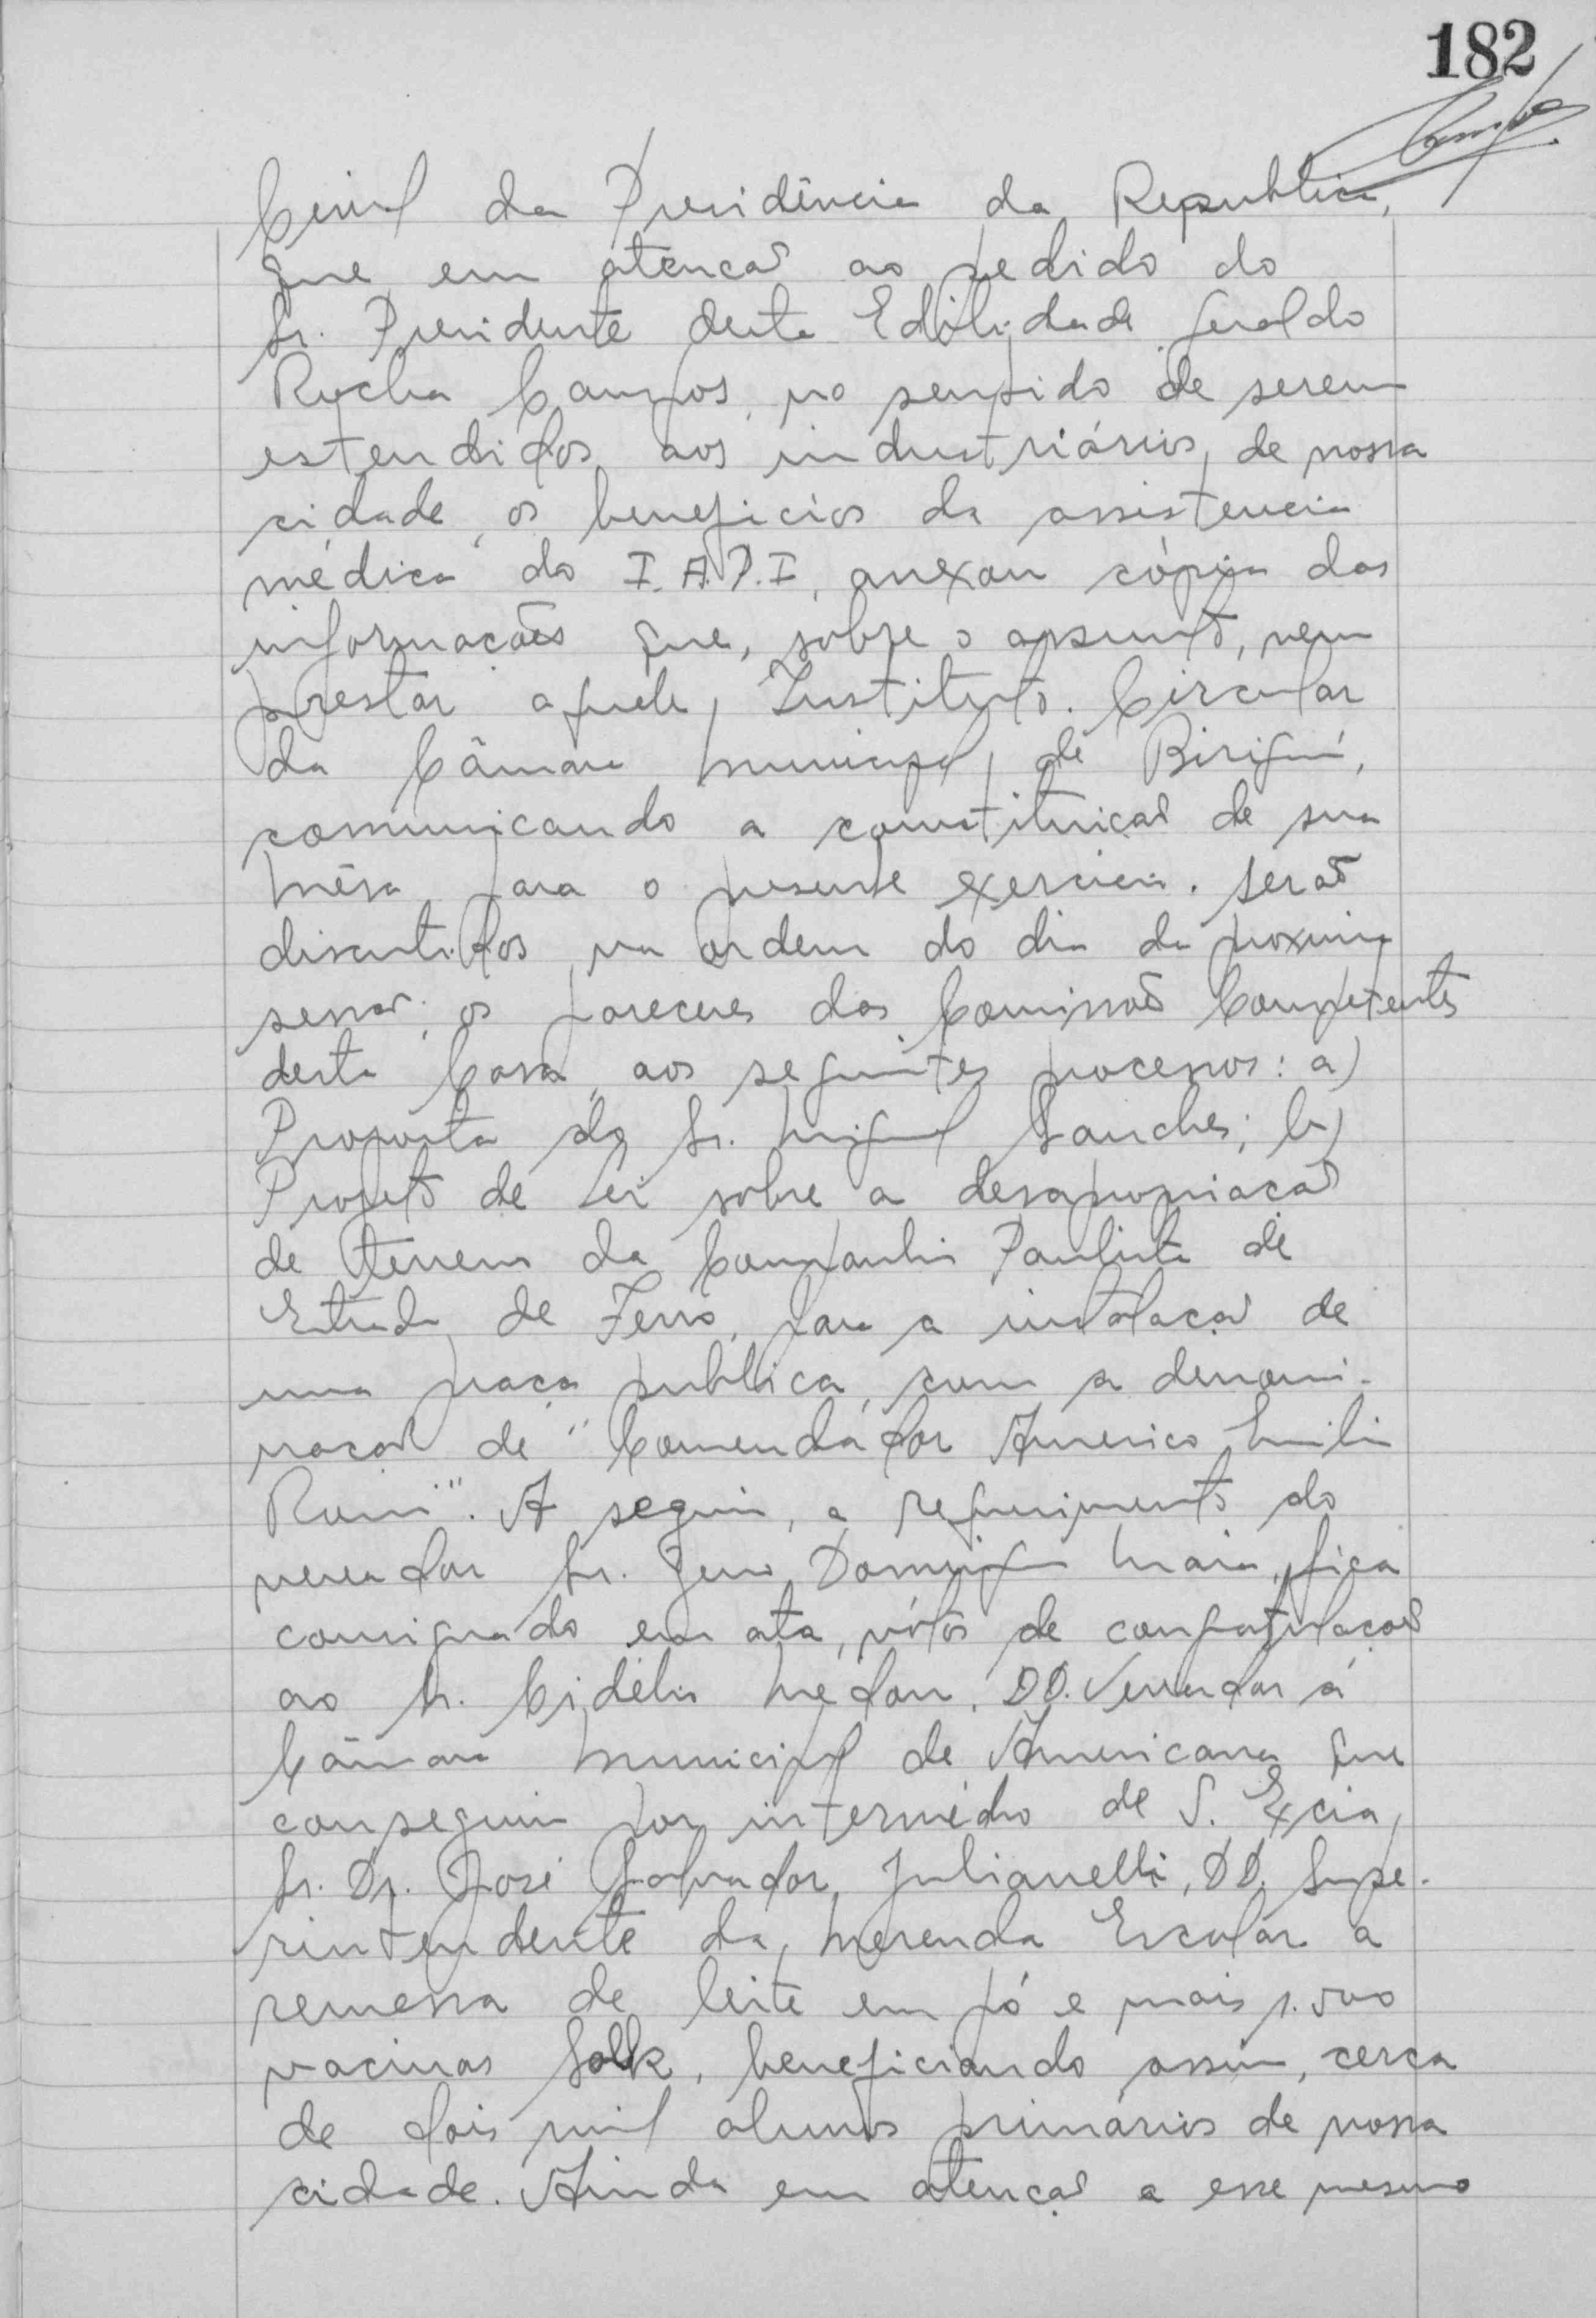 182
Civil da Presidência da Republica,
que em atencaõ ao pedido do
Sr. Presidente desta Edilidade Geraldo
Rocha Campos, no sentido de serem
estendidos aos industriários, de nossa
cidade, os beneficios da assistencia
médica do I.A.P.I, anexou cópia das
informacões que, sobre o assunto, vem
prestar aquele Instituto. Circular
da Câmara Municipal de Birigui,
comunicando a constituicaõ de sua
Mêsa para o presente exercicio. Seraõ
discutidos na ordem do dia da proxima
sessaõ, os pareceres das Comissoẽs Competentes
desta Casa, aos seguintes processos: a)
Proposta do Sr. Miguel Sanches; b)
Projeto de Lei sobre a desapropriacaõ
de terreno da Companhia Paulista de
Estrada de Ferro, para a instalaçaõ de
uma praça publica, com a denomi-
nacaõ de "Comendador Americo Emilio
Romi". A seguir, a requerimento do
vereador Sr. Domingos Maia, fica
consignado em ata, vótos de congratulacoẽs
ao Sr. Cidélis DD. Vereador á
Câmara Municipal de Americana que
conseguiu por intermédio de S. Excia,
Sr. Dr. José Salvador Julianelli, DD. Supe-
rintendente da Merenda Escolar a
remessa de leite em pó e mais 1.500
vacinas Salk, beneficiando assim, cerca
de dois mil alunos primários de nossa
cidade. Ainda em atencaõ a esse mesmo